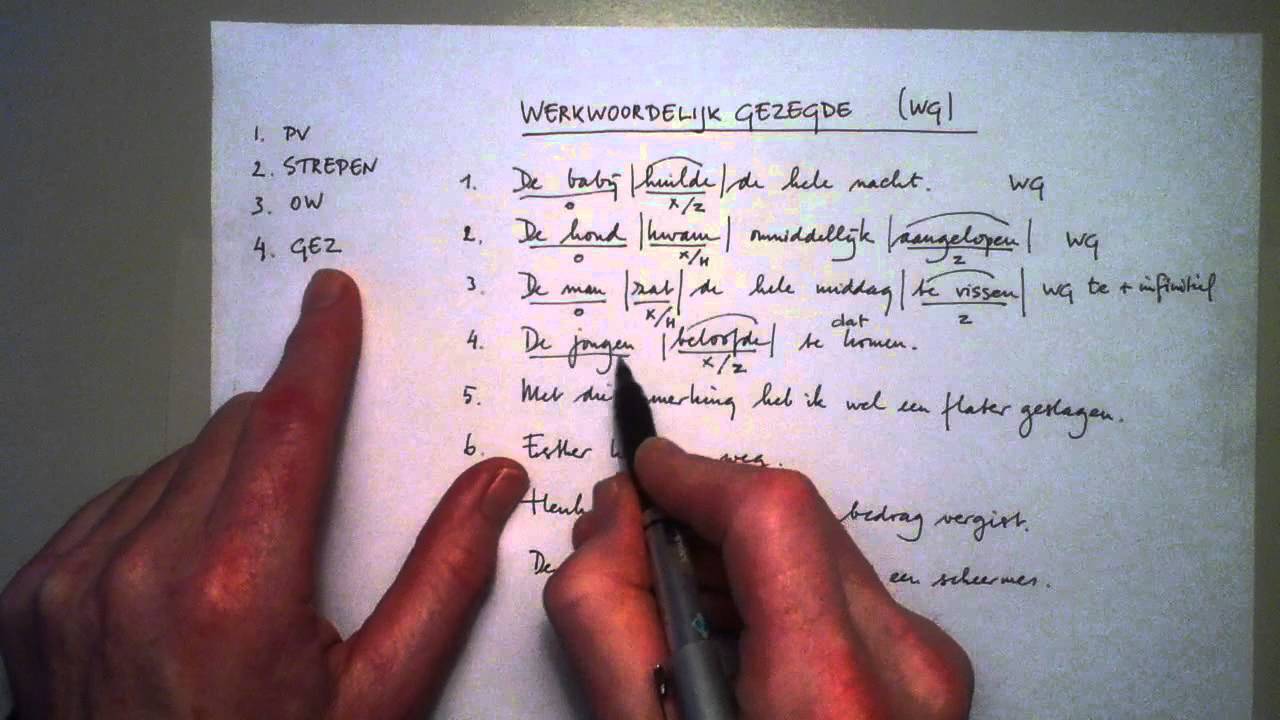 WERKWOORDELIJK GEZEGDE (WG)
1. PV
2. STREPEN
3. OW
4. GEZ
1. De baby | huilde | de hele nacht. WG
O X/Z
2. De hond | kwam | onmiddellijk | aangelopen | WG
O X/H Z
3. De man | zat | de hele middag | te vissen | WG te + infinitief
O X/H Z
dat
4. De jongen | beloofde | te komen.
X/Z
5. Met die heb ik wel een flater geslagen.
6. Esther weg.
Henk bedrag vergist.
De een scheermes.